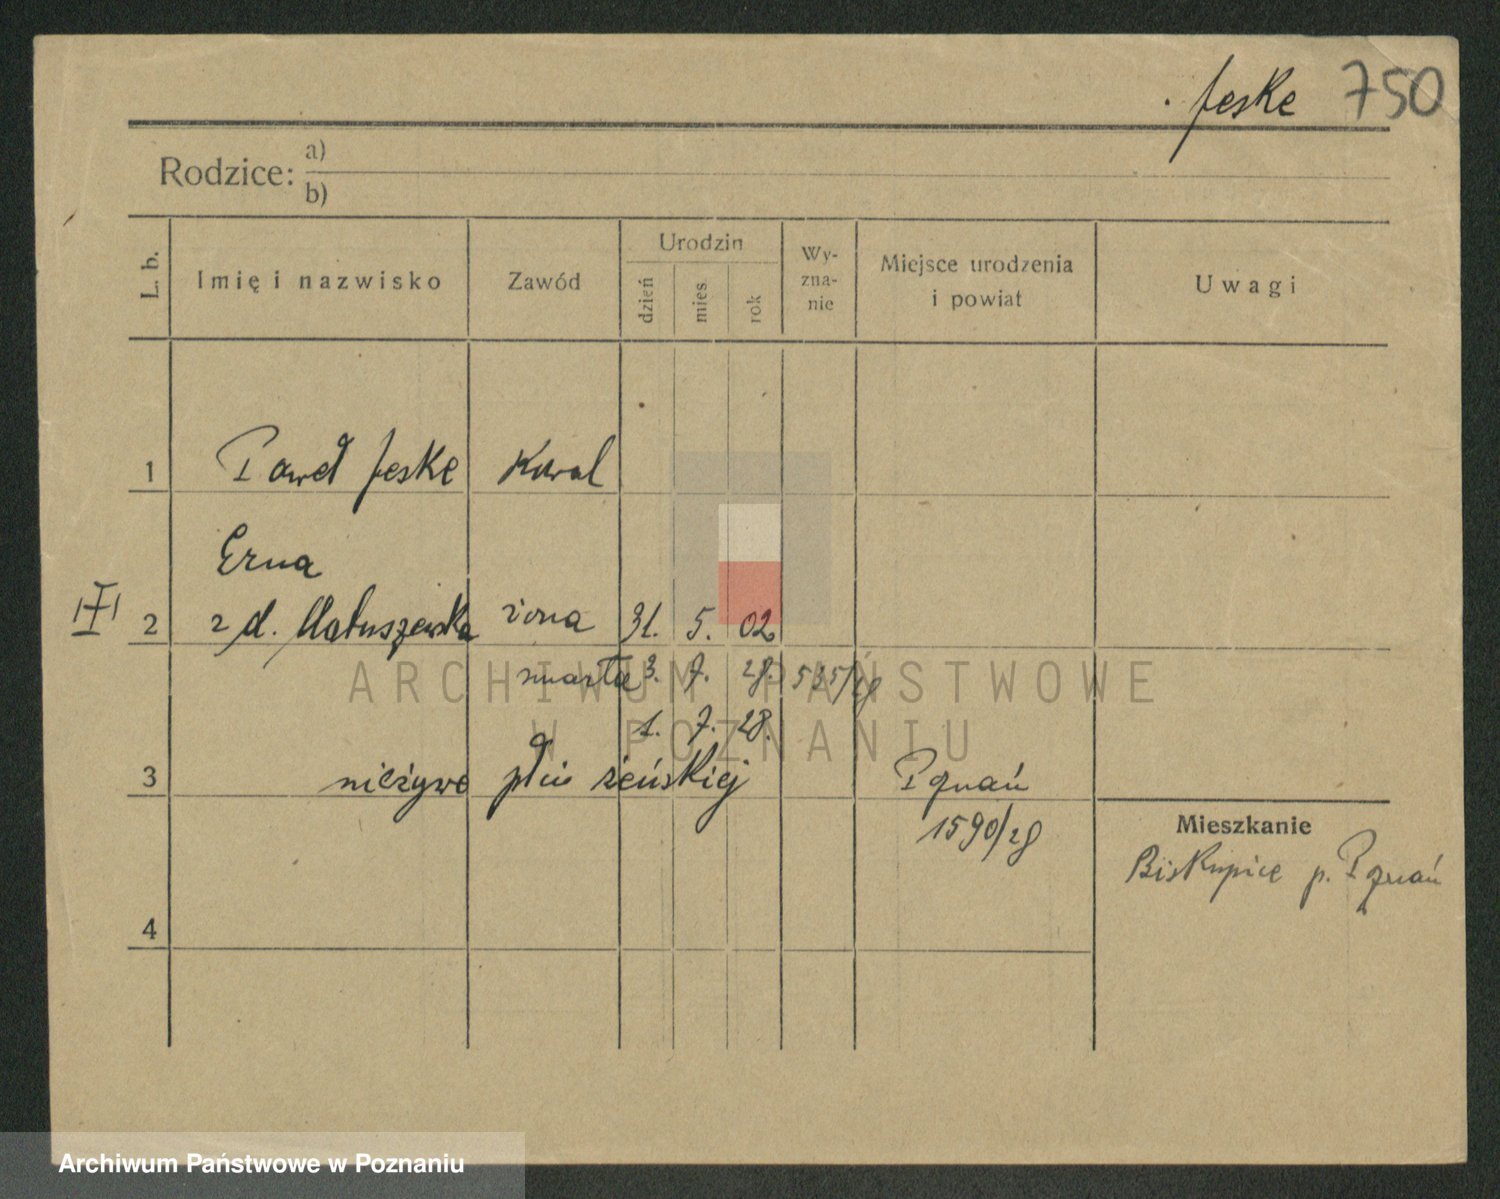 Jeske 750
Rodzice: a)
b)
L. b. Imię i nazwisko Zawód Urodzin dzień mies rok Wy-zna-nie Miejsce urodzenia i powiat Uwagi
1 Paweł Jeske Kowal
Erna
2 z d. Matuszewska żona 31. 5. 02
zmarła 3. 7. 28. 535/28
1. 7. 28.
3 nieżywe płci żeńskiej Poznań
1590/28
Mieszkanie
Biskupice p. Poznań
4
ARCHIWUM PAŃSTWOWE
W POZNANIU
Archiwum Państwowe w Poznaniu